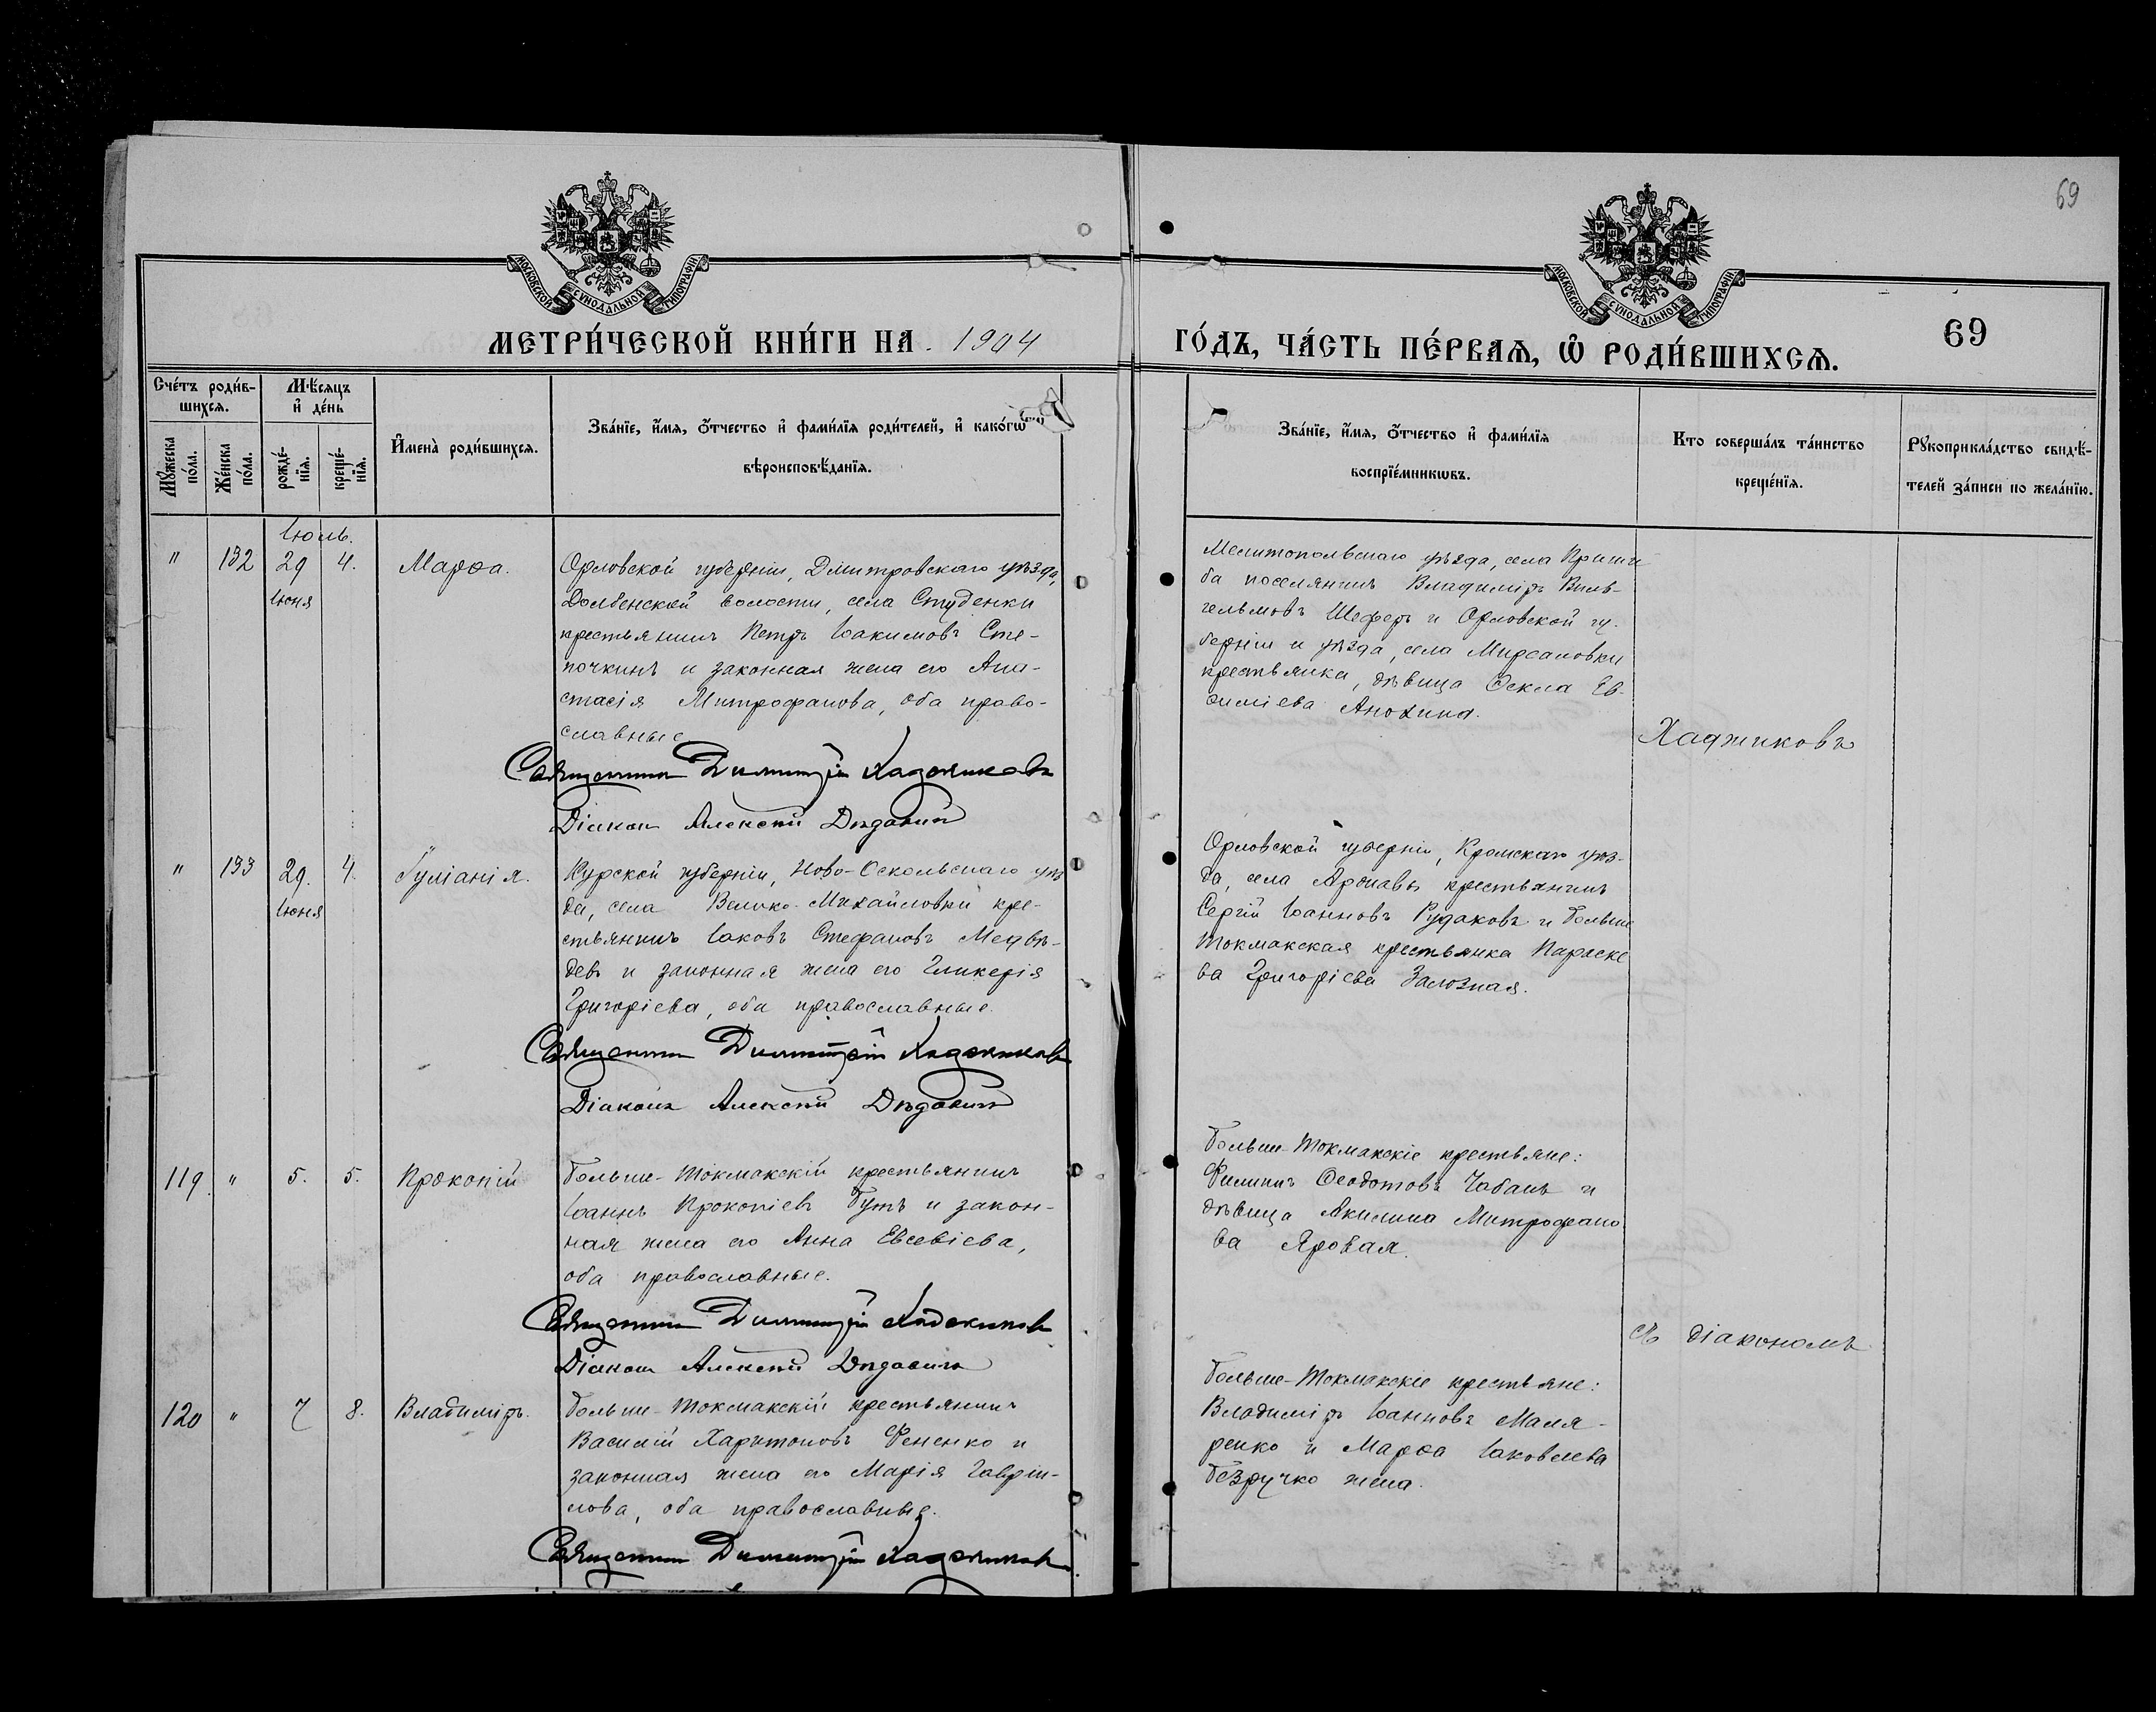 69
МОСКОВСКОЙ СѴНОДАЛЬНОЙ ТИПОГРАФІИ
МОСКОВСКОЙ СѴНОДАЛЬНОЙ ТИПОГРАФІИ
МЕТРИ́ЧЕСКОЙ КНИ́ГИ НА 1904
ГО́ДЪ, ЧА́СТЬ ПЕ́РВАѦ, Ѡ РОДИ́ВШИХСѦ.
69
Сче́тъ роди́в-
шихсѧ.
Мꙋжеска
по́ла.
Же́нска
по́ла.
Мѣ́сѧцъ
и҆ де́нь
рожде́-
нїѧ.
креще́-
нїѧ.
И҆мена̀ роди́вшихсѧ.
Зва́нїе, и҆́мѧ, ѻ҆́тчество и҆ фами́лїѧ роди́телей, и҆ како́гѡ
вѣроисповѣ́данїѧ.
Зва́нїе, и҆́мѧ, ѻ҆́тчество и҆ фами́лїѧ
воспрїе́мникѡвъ.
Кто соверша́лъ та́инство
креще́нїѧ.
Рꙋкоприкла́дство свидѣ́-
телей за́писи по жела́нїю.
Іюль.
" 132 29 4. Марѳа.
Іюня
Орловской губерніи, Дмитровскаго уѣзда,
Долбенской волости, села Студенки
крестьянинъ Петръ Іоакимовъ Сте-
почкинъ и законная жена его Ана-
стасія Митрофанова, оба право-
славные
Священникъ Димитрій Хаджиковъ
Діаконъ Алексѣй Дѣдовичъ
Мелитопольскаго уѣзда, села Приши
ба поселянинъ Владиміръ Виль-
гельмовъ Шеферъ и Орловской гу-
берніи и уѣзда, села
крестьянка, дѣвица Ѳекла Ев-
ѳиміева Анохина.
Хаджиковъ
" 133 29. 4. Іуліанія.
Іюня
Курской губерніи, Ново-Оскольскаго уѣз
да, села Велико-Михайловки кре-
стьянинъ Іаковъ Стефановъ Медвѣ-
девъ и законная жена его Гликерія
Григоріева, оба православные.
Священникъ Димитрій Хаджиковъ
Діаконъ Алексѣй Дѣдовичъ
Орловской губерніи, Кромскаго уѣз-
да, села крестьянинъ
Сергій Іоанновъ Рудаковъ и Больше
Токмакская крестьянка Параске
ва Григоріева Залозная.
119. " 5. 5. Прокопій
Больше-Токмакскій крестьянинъ
Іоаннъ Прокопіевъ Бутъ и закон-
ная жена его Анна Евсевіева,
оба православные.
Священникъ Димитрій Хаджиковъ
Діаконъ Алексѣй Дѣдовичъ
Больше-Токмакскіе крестьяне:
Филиппъ Ѳеодотовъ Чабанъ и
дѣвица Акилина Митрофано
ва Яровая.
съ діакономъ
120 " 7 8. Владиміръ.
Больше-Токмакскій крестьянинъ
Василій Харитоновъ Фененко и
законная жена его Марія Гаврі-
лова, оба православные.
Священникъ Димитрій Хаджиковъ
Больше-Токмакскіе крестьяне:
Владиміръ Іоанновъ Маля-
ренко и Марѳа Іаковлева
Безручко жена.